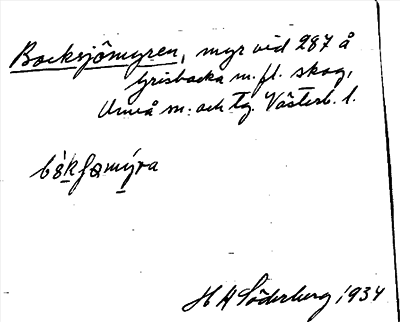 Bocksjömyren, myr vid 287 å
Grisbacka m. fl. skog,
Umeå sn. och tg. Västerb. l.
H A Söderberg 1934